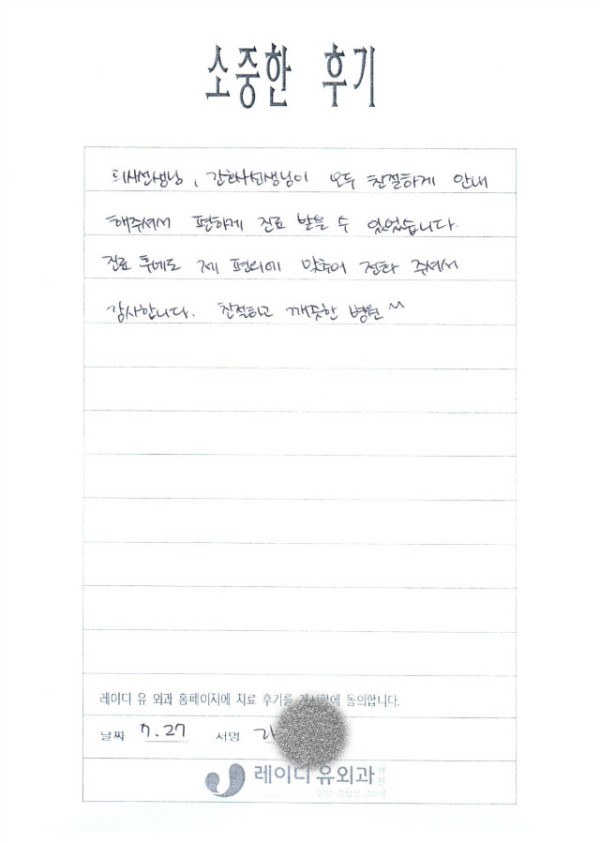 소중한 후기
의사선생님, 간호사선생님이 모두 친절하게 안내
해주셔서 편하게 진료 받을 수 있었습니다.
진료 후에도 제 편의에 맞추어 전화 주셔서
감사합니다. 친절하고 깨끗한 병원^^
레이디 유 외과 홈페이지에 치료 후기를 게시함에 동의합니다.
날짜 7.27 서명
레이디 유외과